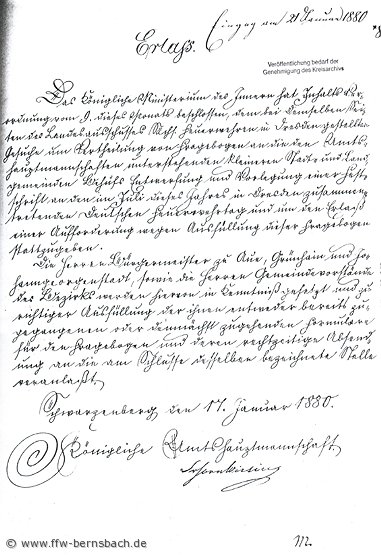 Eingeg. am 21 Januar 1880
Erlaß.
Veröffentlichung bedarf der
Genehmigung des Kreisarchivs
Das Königliche Ministerium des Innern hat Inhalts Ver-
ordnung vom 9. dieses Monats beschlossen, dem bei demselben Sei-
ten des Landesausschusses Sächs. Feuerwehren in Dresden gestellten
Gesuche um Vertheilung von Fragebogen an die den Amts-
hauptmannschaften unterstehenden kleinern Städte und Land
gemeinden Behufs Entwerfung und Vorlegung einer Fest-
schrift an den im Juli dieses Jahres in Dresden zusammen-
tretenden Deutschen Feuerwehrtag und um den Erlaß
einer Aufforderung wegen Ausfüllung dieser Fragebogen
stattzugeben.
Die Herren Bürgermeister zu Aue, Grünhain und Jo-
hanngeorgenstadt, sowie die Herren Gemeindevorstände
des Bezirks werden hiervon in Kenntniß gesetzt und zu
richtiger Ausfüllung der ihnen entweder bereits zu-
gegangenen oder demnächst zugehenden Formulare
für den Fragebogen und deren rechtzeitige Absend-
ung an die am Schlusse desselben bezeichnete Stelle
veranlaßt.
Schwarzenberg, den 17. Januar 1880.
Königliche Amtshauptmannschaft
M.
© www.ffw-bernsbach.de